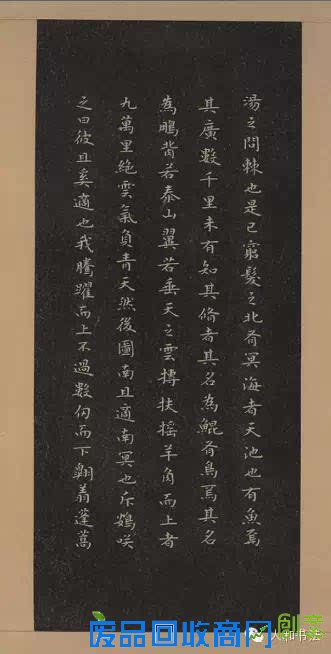 湯之問棘也是已窮髮之北有冥海者天池也有魚焉
其廣數千里未有知其脩者其名為鯤有鳥焉其名
為鵬背若泰山翼若垂天之雲摶扶搖羊角而上者
九萬里絕雲氣負青天然後圖南且適南冥也斥鴳咲
之曰彼且奚適也我騰躍而上不過數仞而下翱翔蓬蒿
废品回收商网
大和书法